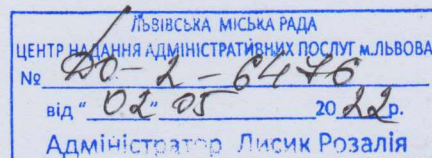 ЛЬВІВСЬКА МІСЬКА РАДА
ЦЕНТР НАДАННЯ АДМІНІСТРАТИВНИХ ПОСЛУГ м.ЛЬВОВА
№ ДО-2-6476
від " 02 " 05 20 22 р.
Адміністратор Лисик Розалія